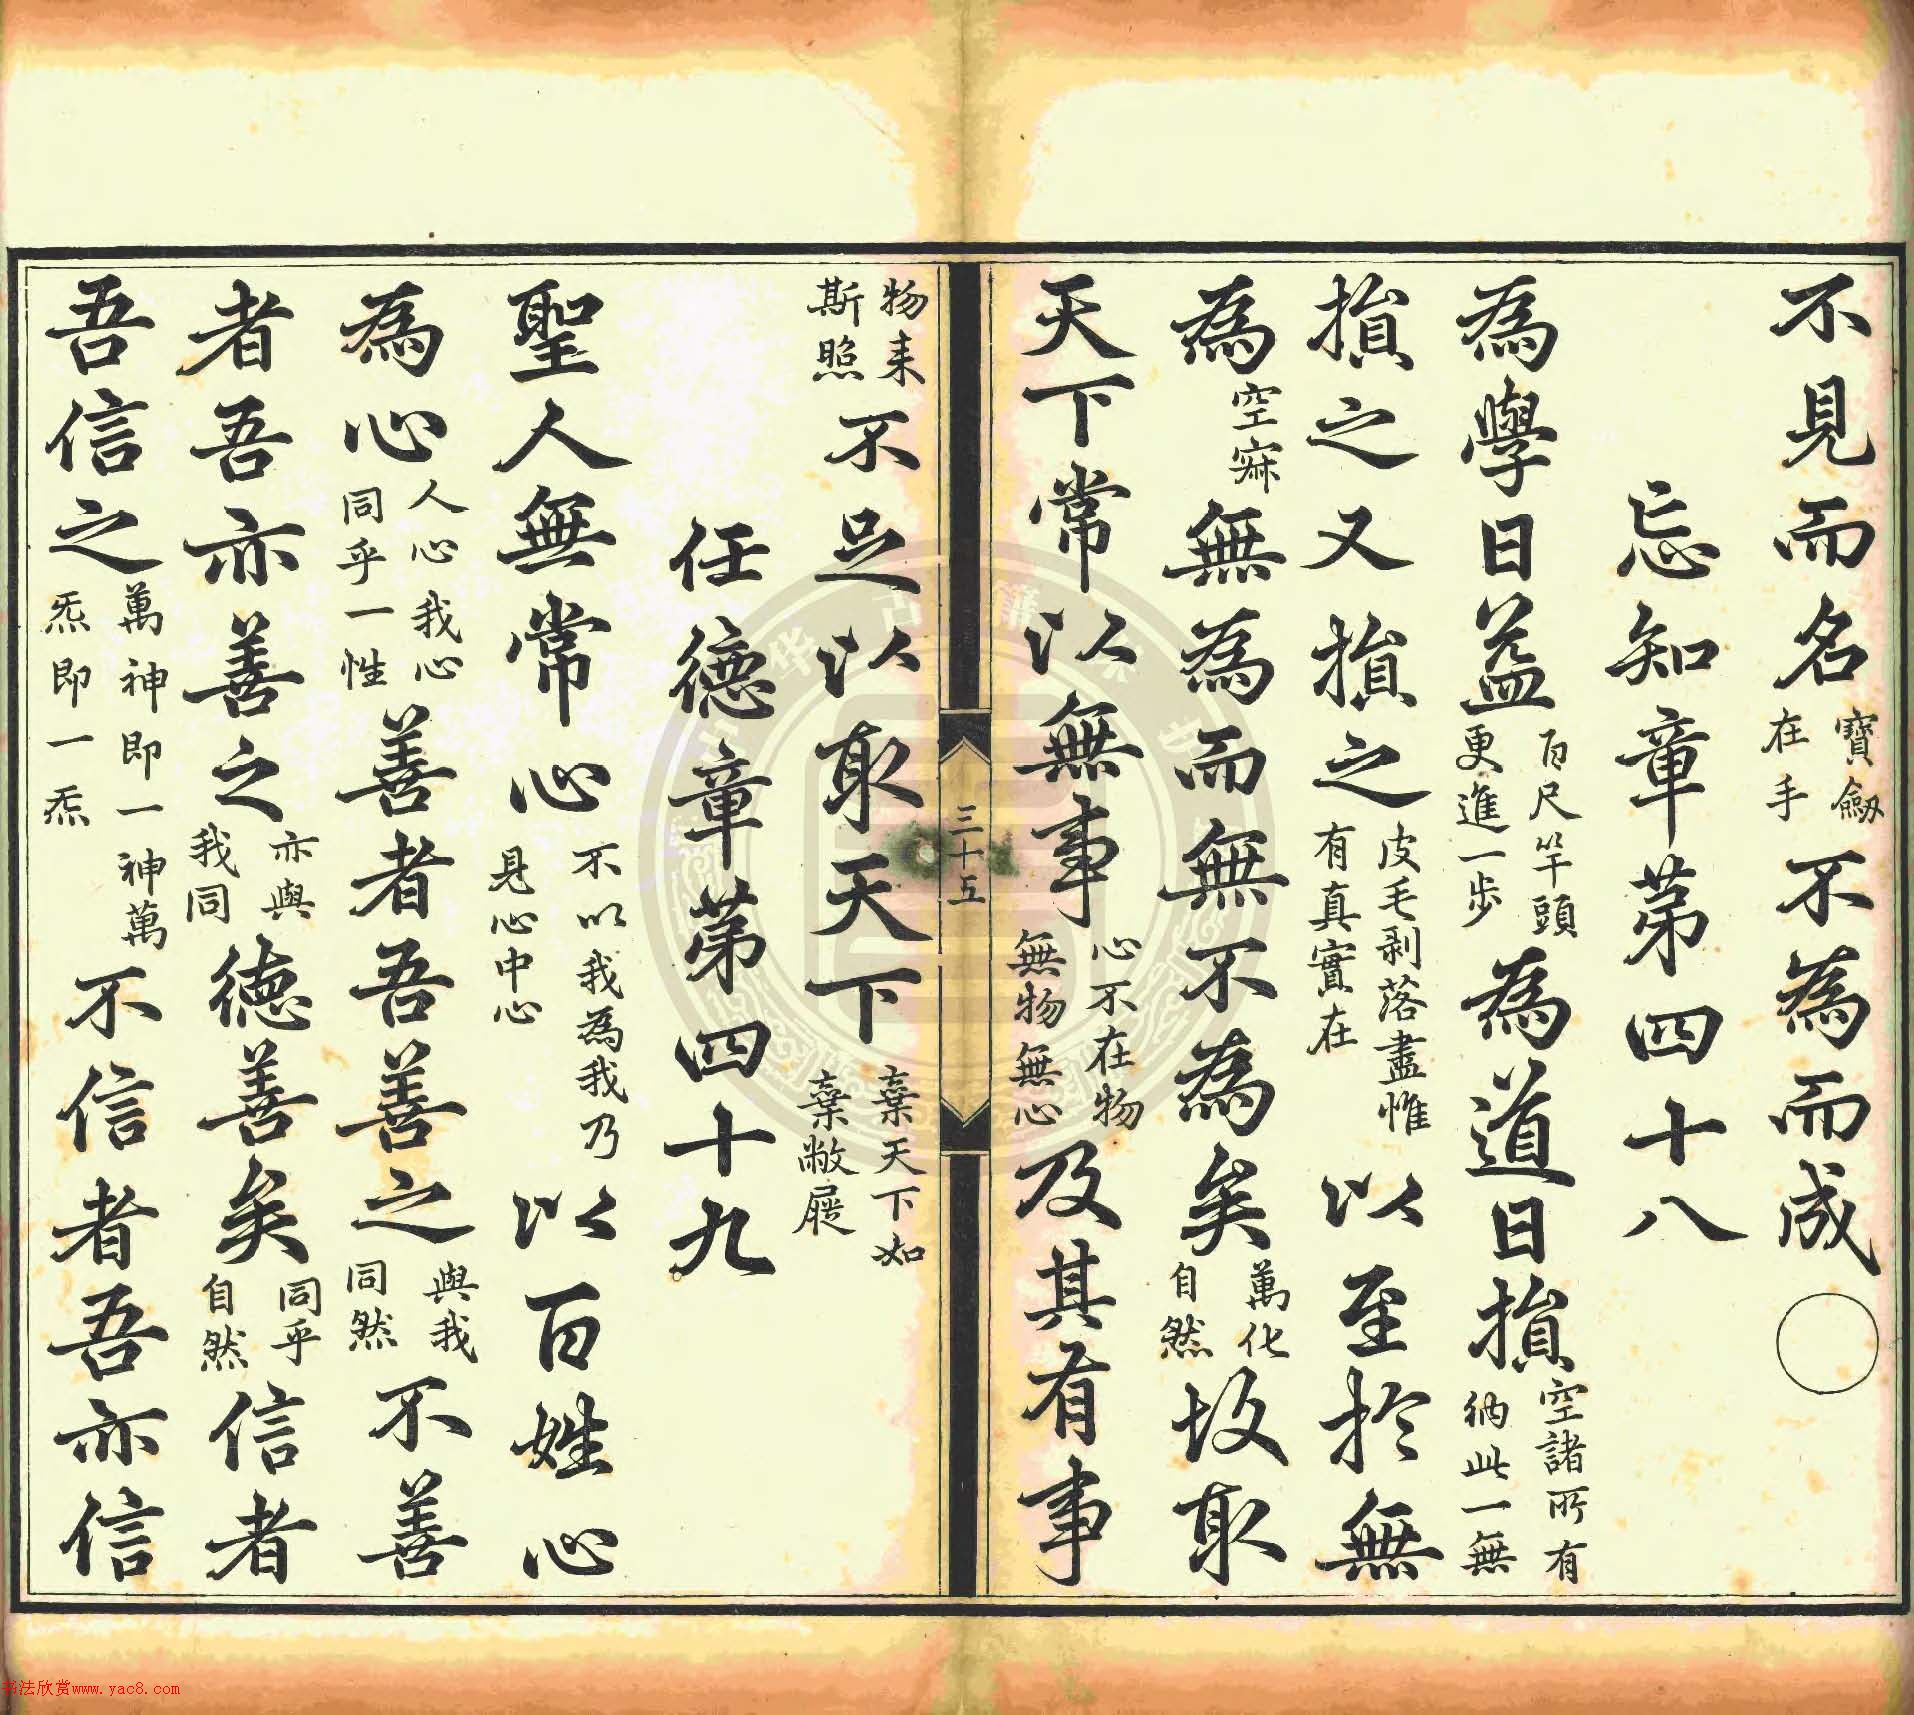 不見而名寶劔在手不為而成
忘知章第四十八
為學日益百尺竿頭更進一步為道日損空諸所有納此一無
損之又損之皮毛剥落盡惟有真實在以至於無
為空寂無為而無不為矣萬化自然故取
天下常以無事心不在物無物無心及其有事
三十五
物来斯照不足以取天下棄天下如棄敝屣
任德章第四十九
聖人無常心不以我為我乃見心中心以百姓心
為心人心我心同乎一性善者吾善之與我同然不善
者吾亦善之亦與我同德善矣同乎自然信者
吾信之萬神即一神萬炁即一炁不信者吾亦信
书法欣赏www.yac8.com